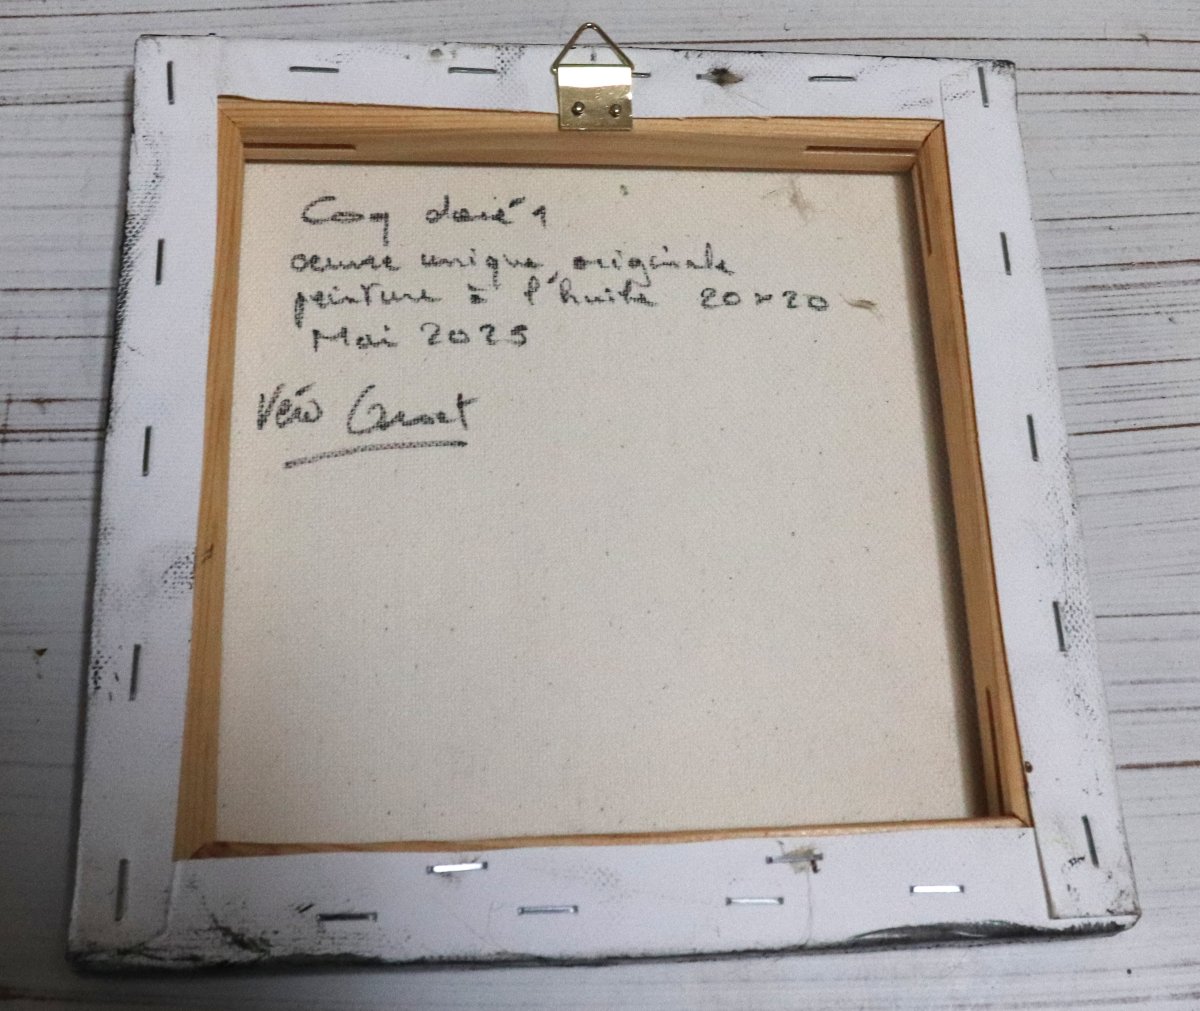 Coq doré 1
oeuvre unique, originale
peinture à l'huile 20 x 20
Mai 2025
Véro